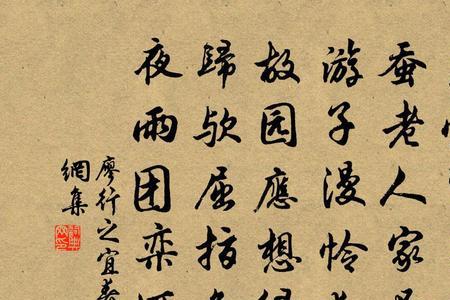 蚕老人家
游子漫怜
故园應想
歸欤屈指
夜雨团栾
廖行之宜春
網集